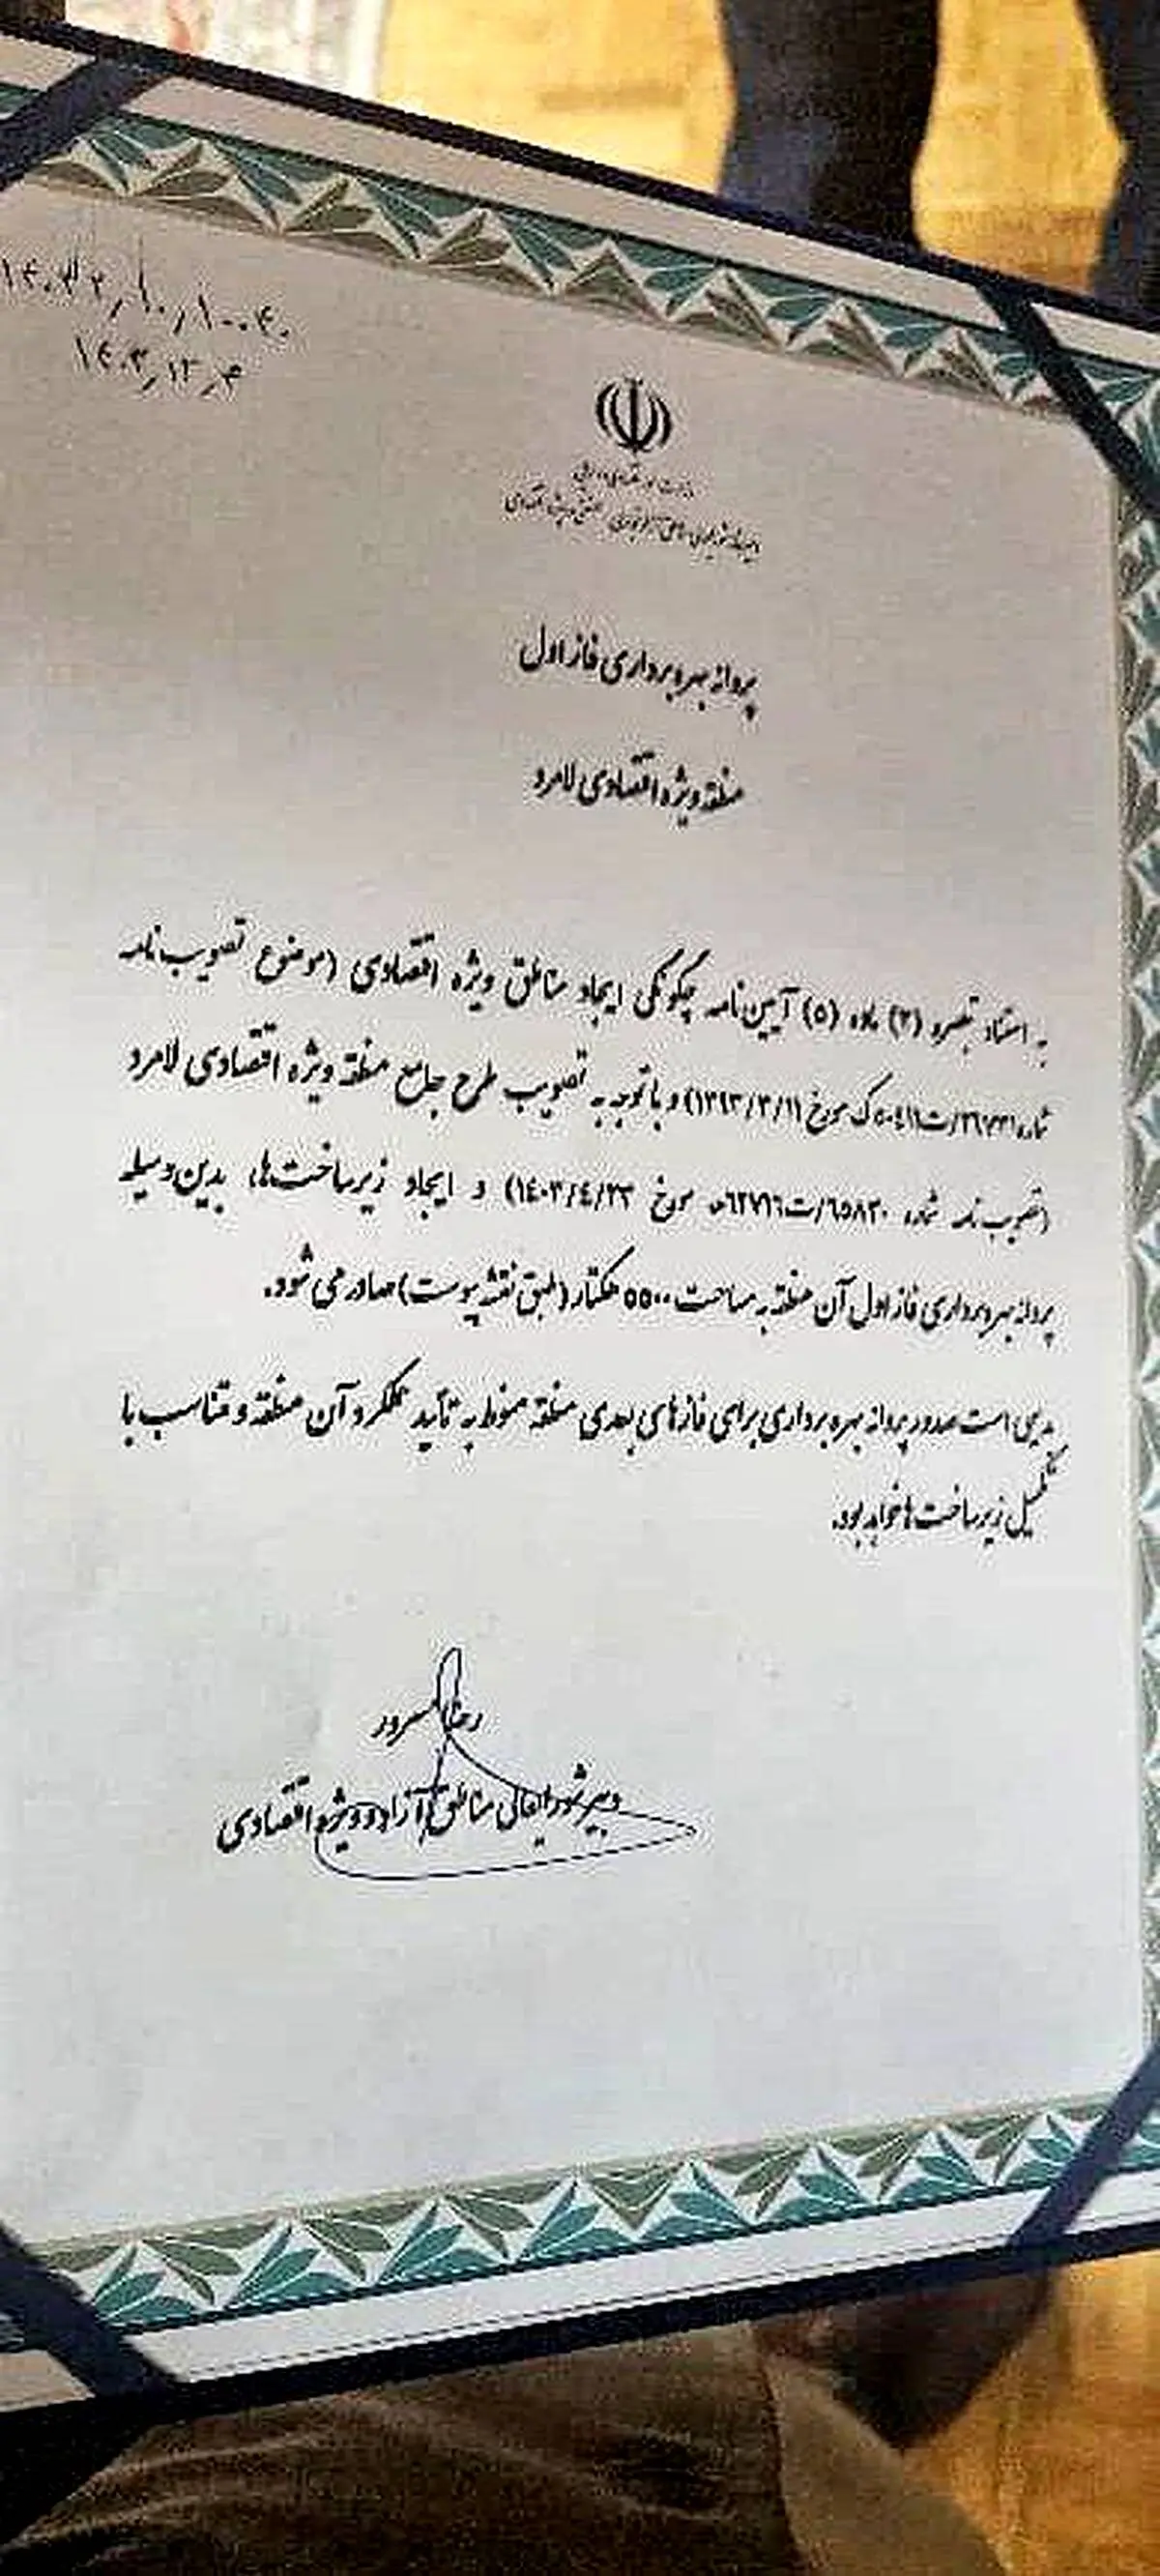 ۱۴۰۳/۱۲/۴
وزارت امور اقتصادی و دارایی
دبیرخانه شورایعالی مناطق آزاد تجاری - صنعتی و ویژه اقتصادی
پروانه بهره‌برداری فاز اول
منطقه ویژه اقتصادی لامرد
به استناد تبصره (۲) ماده (۵) آیین‌نامه چگونگی ایجاد مناطق ویژه اقتصادی (موضوع تصویب نامه
شماره ک مورخ ۱۳۹۳/۳/۱۱) و با توجه به تصویب طرح جامع منطقه ویژه اقتصادی لامرد
(تصویب نامه شماره ۶۵۸۳۰/ت۶۲۷۱۶هـ مورخ ۱۴۰۳/۴/۲۳) و ایجاد زیرساخت‌ها، بدین‌وسیله
پروانه بهره‌برداری فاز اول آن منطقه به مساحت ۵۵۰۰ هکتار (طبق نقشه پیوست) صادر می‌شود.
بدیهی است صدور پروانه بهره‌برداری برای فازهای بعدی منطقه منوط به تأیید عملکرد آن منطقه و متناسب با
تکمیل زیرساخت‌ها خواهد بود.
رضا مسرور
دبیر شورایعالی مناطق آزاد و ویژه اقتصادی